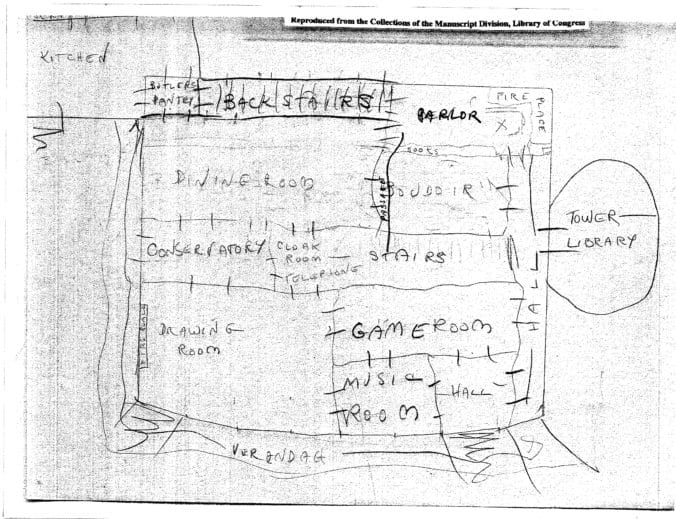 Reproduced from the Collections of the Manuscript Division, Library of Congress
KITCHEN
BUTLERS
PANTRY
BACK STAIRS
PARLOR
FIRE
PLACE
X
DINING ROOM
PASSAGE
BOUDOIR
TOWER
LIBRARY
CONSERVATORY
CLOAK
ROOM
TELEPHONE
STAIRS
HALL
FIRE PLACE
DRAWING
ROOM
GAME ROOM
MUSIC
ROOM
HALL
VERANDAH